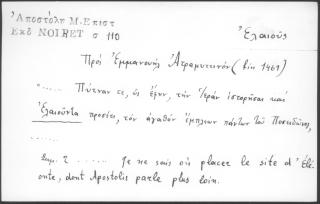 Ἀποστόλη Μ. Επιστ
Εκδ NOIRET σ 110
Ἐλαιοῦς
Πρὸς Ἐμμανουὴλ Ἀτραμυττηνόν (fin 1461)
..... Πύτναν τε, ὡς ἔχην, τὴν Ἱερὰν ἱστορῆσαι καὶ
Ἐλαιοῦντα προσέτι, τὸν ἀγαθῶν ἔμπλεων πάντων τοῦ Ποσειδῶνος,
.....
Σημ. 2 ...... Je ne sais où placer le site d'Élé
onte, dont Apostolis parle plus loin.